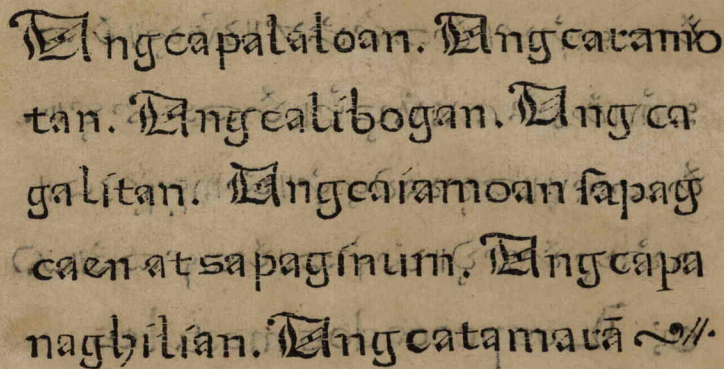 Ang capalaloan. Ang caramo
tan. Ang calibogan. Ang ca
galitan. Ang caiamoan sapag
caen at sa paginum. Ang capa
naghilian. Ang catamarā